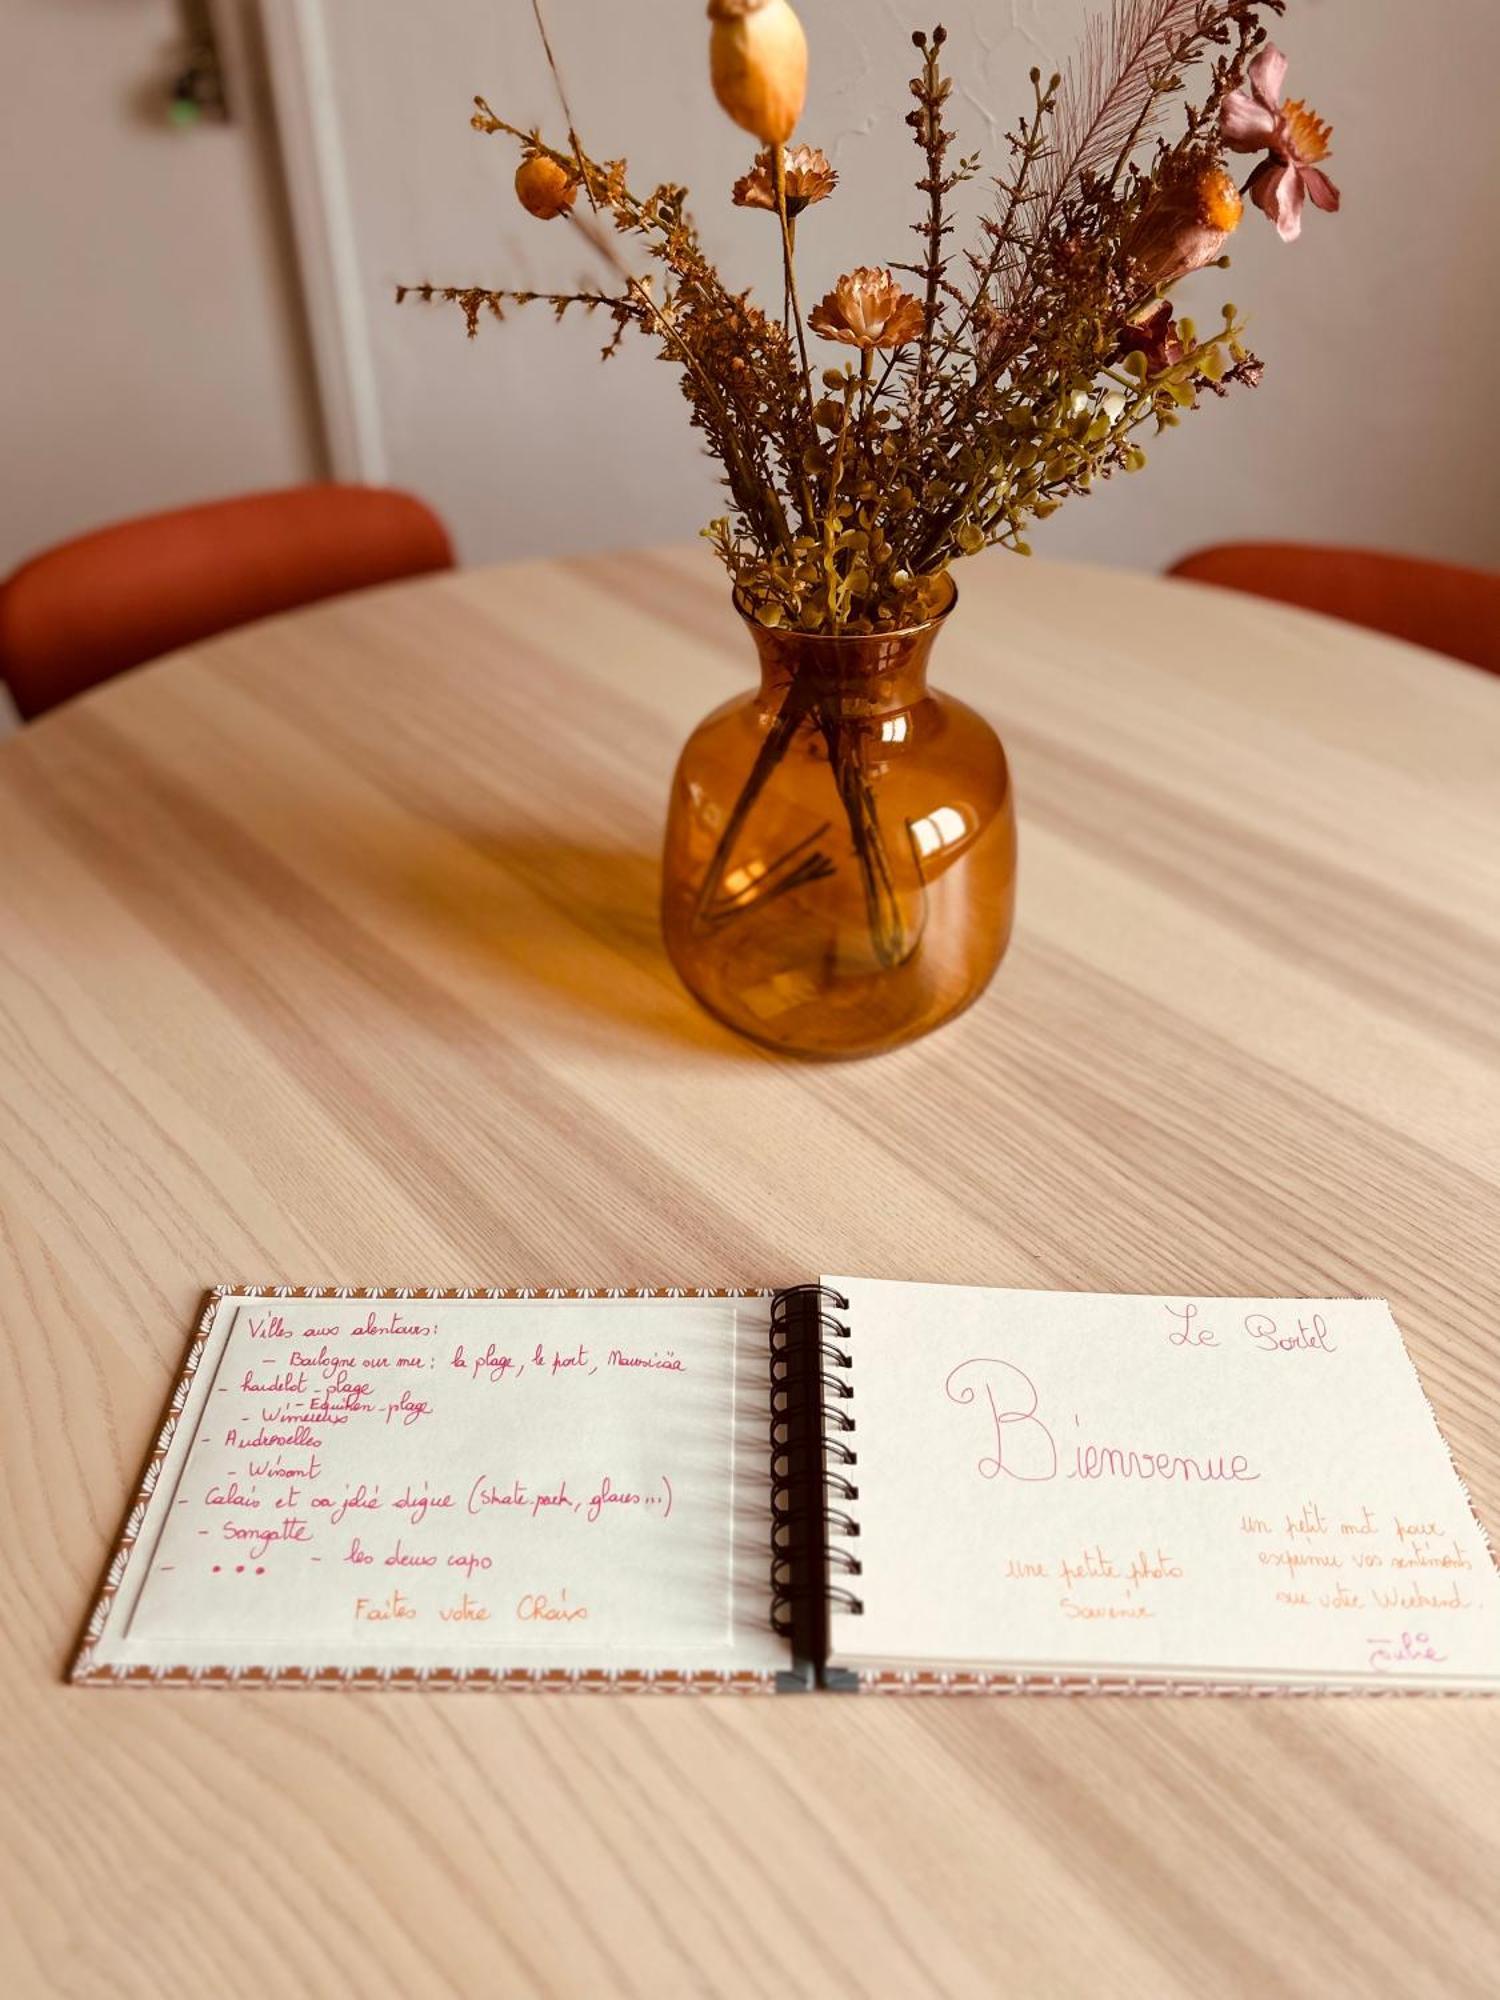 Villes aux alentours:
- Boulogne sur mer : la plage, le port, Nausicäa
- hardelot - plage
- Equihen - plage
- Wimereux
- Audresselles
- Wissant
- Calais et sa jolie digue (skate park, glaces...)
- Sangatte
- ...
- les deux caps
Faites votre Choix
Le Portel
Bienvenue
une petite photo
Souvenir
un petit mot pour
exprimer vos sentiments
sur votre Weekend.
Julie